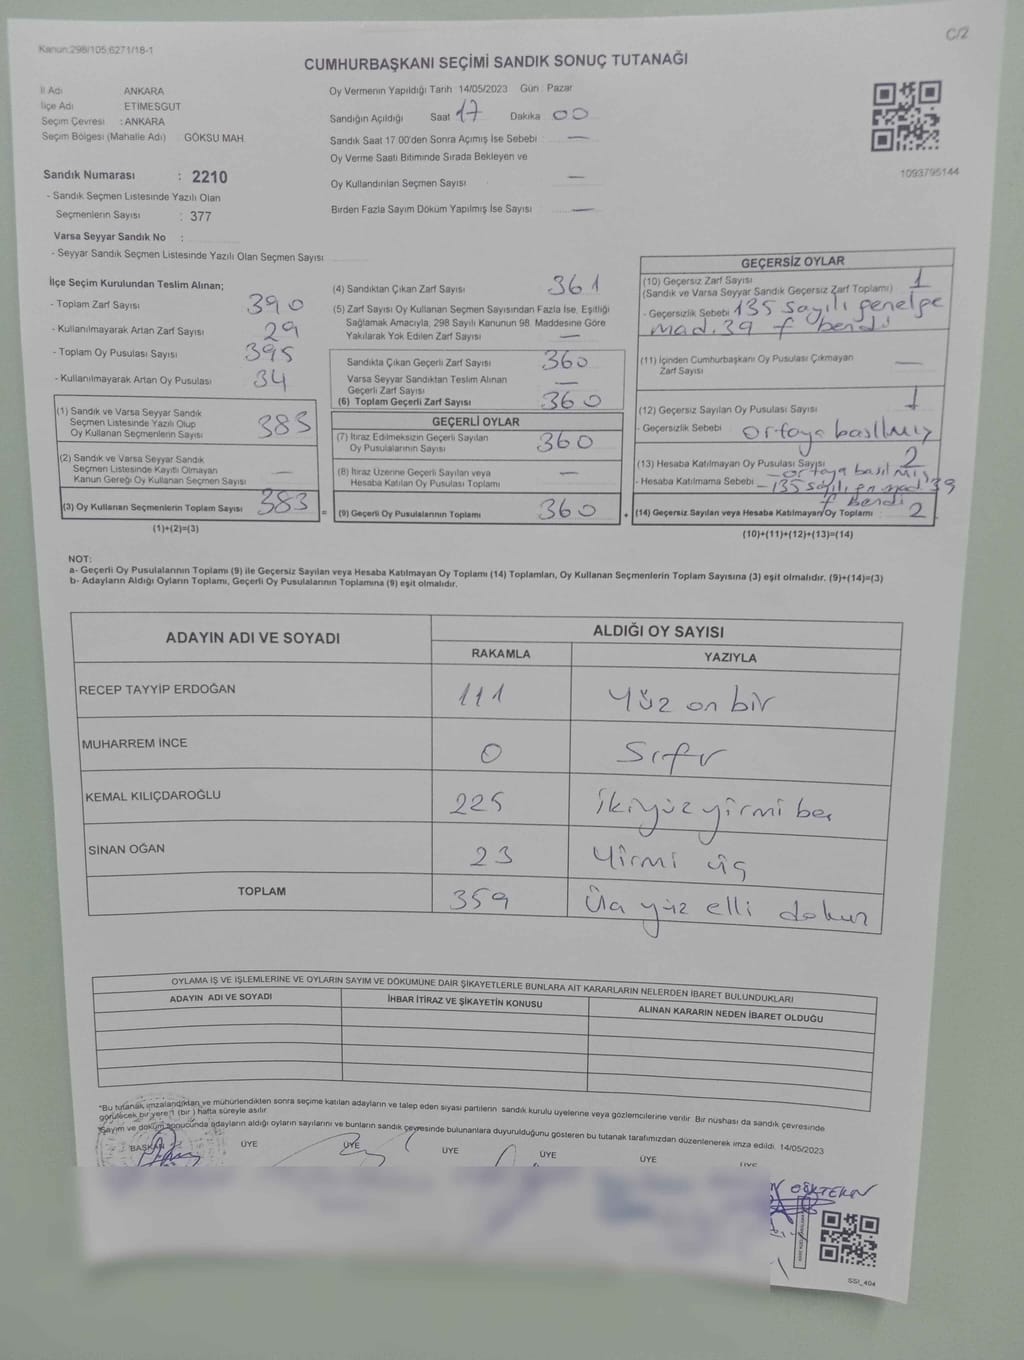 Kanun:298/105;6271/18-1
C/2
CUMHURBAŞKANI SEÇİMİ SANDIK SONUÇ TUTANAĞI
İl Adı ANKARA
İlçe Adı ETİMESGUT
Seçim Çevresi : ANKARA
Seçim Bölgesi (Mahalle Adı) GÖKSU MAH
Sandık Numarası : 2210
- Sandık Seçmen Listesinde Yazılı Olan
Seçmenlerin Sayısı : 377
Varsa Seyyar Sandık No :
- Seyyar Sandık Seçmen Listesinde Yazılı Olan Seçmen Sayısı
Oy Vermenin Yapıldığı Tarih 14/05/2023 Gün : Pazar
Sandığın Açıldığı Saat 17 Dakika 00
Sandık Saat 17 00'den Sonra Açımış İse Sebebi —
Oy Verme Saati Bitiminde Sırada Bekleyen ve
Oy Kullandırılan Seçmen Sayısı —
Birden Fazla Sayım Döküm Yapılmış İse Sayısı —
1093795144
İlçe Seçim Kurulundan Teslim Alınan;
- Toplam Zarf Sayısı 390
- Kullanılmayarak Artan Zarf Sayısı 29
- Toplam Oy Pusulası Sayısı 395
- Kullanılmayarak Artan Oy Pusulası 34
(1) Sandık ve Varsa Seyyar Sandık
Seçmen Listesinde Yazılı Olup
Oy Kullanan Seçmenlerin Sayısı 383
(2) Sandık ve Varsa Seyyar Sandık
Seçmen Listesinde Kayıtlı Olmayan
Kanun Gereği Oy Kullanan Seçmen Sayısı —
(3) Oy Kullanan Seçmenlerin Toplam Sayısı 383 =
(1)+(2)=(3)
(4) Sandıktan Çıkan Zarf Sayısı 361
(5) Zarf Sayısı Oy Kullanan Seçmen Sayısından Fazla İse, Eşitliği
Sağlamak Amacıyla, 298 Sayılı Kanunun 98. Maddesine Göre
Yakılarak Yok Edilen Zarf Sayısı —
Sandıkta Çıkan Geçerli Zarf Sayısı 360
Varsa Seyyar Sandıktan Teslim Alınan
Geçerli Zarf Sayısı —
(6) Toplam Geçerli Zarf Sayısı 360
GEÇERLİ OYLAR
(7) İtiraz Edilmeksizin Geçerli Sayılan
Oy Pusulalarının Sayısı 360
(8) İtiraz Üzerine Geçerli Sayılan veya
Hesaba Katılan Oy Pusulası Toplamı —
(9) Geçerli Oy Pusulalarının Toplamı 360 +
GEÇERSİZ OYLAR
(10) Geçersiz Zarf Sayısı 1
(Sandık ve Varsa Seyyar Sandık Geçersiz Zarf Toplamı)
- Geçersizlik Sebebi 135 sayılı genelge
mad. 39 f bendi
(11) İçinden Cumhurbaşkanı Oy Pusulası Çıkmayan
Zarf Sayısı —
(12) Geçersiz Sayılan Oy Pusulası Sayısı 1
- Geçersizlik Sebebi ortaya basılmış
(13) Hesaba Katılmayan Oy Pusulası Sayısı 2
- ortaya basılmış
- Hesaba Katılmama Sebebi - 135 sayılı gn mad 39
f bendi
(14) Geçersiz Sayılan veya Hesaba Katılmayan Oy Toplamı 2
(10)+(11)+(12)+(13)=(14)
NOT:
a- Geçerli Oy Pusulalarının Toplamı (9) ile Geçersiz Sayılan veya Hesaba Katılmayan Oy Toplamı (14) Toplamları, Oy Kullanan Seçmenlerin Toplam Sayısına (3) eşit olmalıdır. (9)+(14)=(3)
b- Adayların Aldığı Oyların Toplamı, Geçerli Oy Pusulalarının Toplamına (9) eşit olmalıdır.
ADAYIN ADI VE SOYADI ALDIĞI OY SAYISI
RAKAMLA YAZIYLA
RECEP TAYYİP ERDOĞAN 111 Yüz on bir
MUHARREM İNCE 0 Sıfır
KEMAL KILIÇDAROĞLU 225 İkiyüzyirmi beş
SİNAN OĞAN 23 Yirmi üç
TOPLAM 359 Üç yüz elli dokuz
OYLAMA İŞ VE İŞLEMLERİNE VE OYLARIN SAYIM VE DÖKÜMÜNE DAİR ŞİKAYETLERLE BUNLARA AİT KARARLARIN NELERDEN İBARET BULUNDUKLARI
ADAYIN ADI VE SOYADI İHBAR İTİRAZ VE ŞİKAYETİN KONUSU ALINAN KARARIN NEDEN İBARET OLDUĞU
*Bu tutanak imzalandıktan ve mühürlendikten sonra seçime katılan adayların ve talep eden siyasi partilerin sandık kurulu üyelerine veya gözlemcilerine verilir. Bir nüshası da sandık çevresinde
görülecek bir yere 1 (bir ) hafta süreyle asılır.
*Sayım ve döküm sonucunda adayların aldığı oyların sayılarını ve bunların sandık çevresinde bulunanlara duyurulduğunu gösteren bu tutanak tarafımızdan düzenlenerek imza edildi. 14/05/2023
BAŞKAN ÜYE ÜYE ÜYE ÜYE ÜYE ÜYE
SSI_404